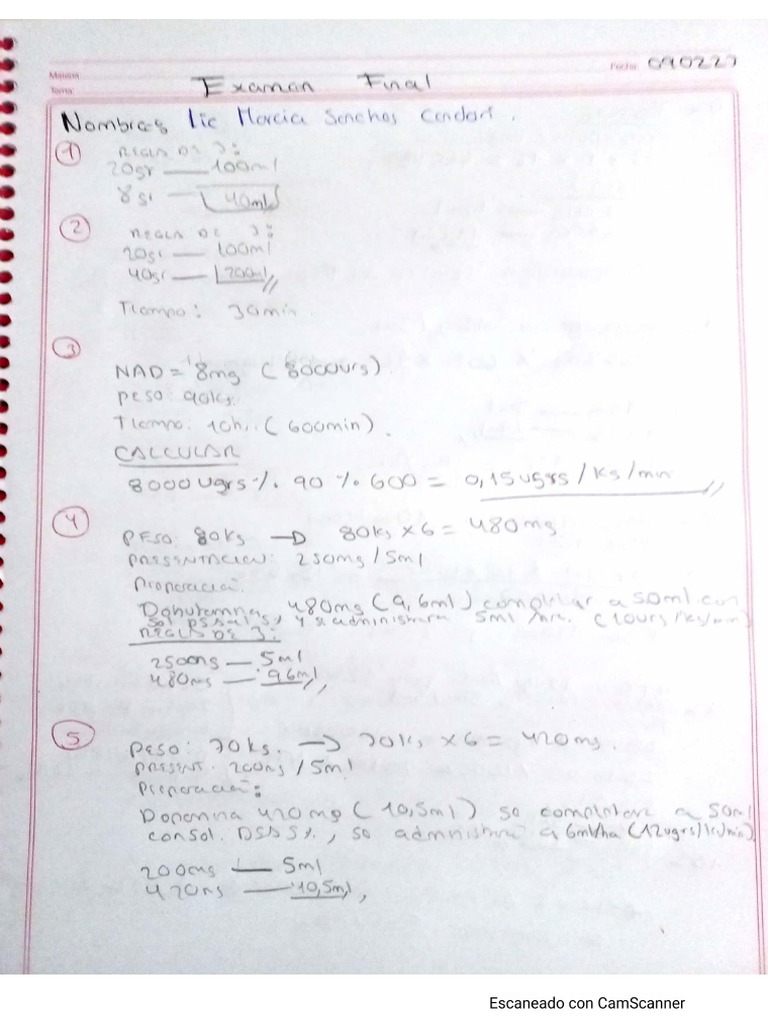 Materia:
Fecha: 090227
Tema:
Examen Final
Nombres Lic Marcia Sanchez Condori.
1 REGLA DE 3:
20gr — 100ml
8gr — 40ml
2 REGLA DE 3:
20gr — 100ml
40gr — 200ml //
Tiempo: 30min.
3
NAD = 8mg (8000ugrs)
peso: 90kg.
Tiempo: 10h. (600min).
CALCULAR
8000ugrs % 90 % 600 = 0,15ugrs/kg/min //
4 PESO: 80kg → 80kg x6 = 480mg
PRESENTACION: 250mg/5ml
Preparación:
Dobutamina, 480mg (9,6ml) completar a 50ml con
sol y se administra 5ml/hra. (10ugrs/kg/min)
REGLA DE 3:
250mg — 5ml
480mg — 9,6ml //
5 peso: 70kg. → 70kg x6 = 420mg.
PRESENT. 200mg/5ml
Preparación:
Dopamina 420mg (10,5ml) se completara a 50ml
con sol. DSD5%, se administra a 6ml/hra (12ugrs/kg/min).
200mg — 5ml
420mg — 10,5ml,
Escaneado con CamScanner